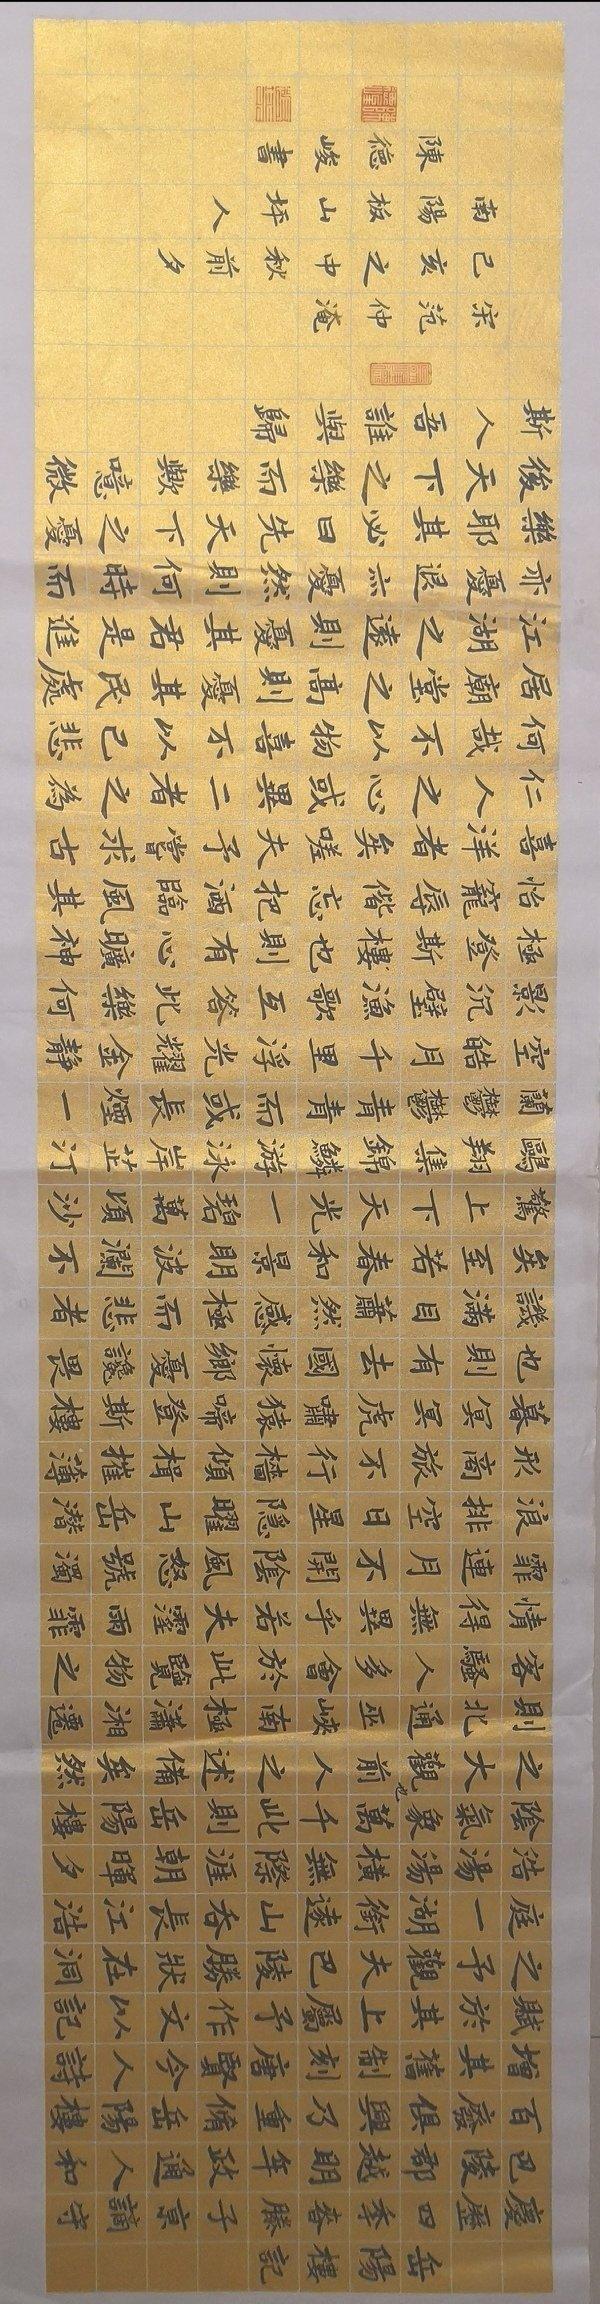 岳陽樓記
慶歷四季春滕子京謫守
巴陵郡越明年政通人和
百廢俱興乃重修岳陽樓
增其舊制刻唐賢今人詩
賦於其上屬予作文以記
之予觀夫巴陵勝狀在洞
庭一湖銜遠山吞長江浩
浩湯湯橫無際涯朝暉夕
陰氣象萬千此則岳陽樓
之大觀也前人之述備矣然
則北通巫峽南極瀟湘遷
客騷人多會於此覽物之
情得無異乎若夫霪雨霏
霏連月不開陰風怒號濁
浪排空日星隱曜山岳潛
形商旅不行檣傾楫摧薄
暮冥冥虎嘯猿啼登斯樓
也則有去國懷鄉憂讒畏
譏滿目蕭然感極而悲者
矣至若春和景明波瀾不
驚上下天光一碧萬頃沙
鷗翔集錦鱗游泳岸芷汀
蘭鬱鬱青青而或長煙一
空皓月千里浮光耀金靜
影沉璧漁歌互答此樂何
極登斯樓也則有心曠神
怡寵辱偕忘把酒臨風其
喜洋者矣嗟夫予嘗求古
仁人之心或異二者之為
何哉不以物喜不以己悲
居廟堂之高則憂其民處
江湖之遠則憂其君是進
亦憂退亦憂然則何時而
樂耶其必曰先天下之憂
後天下之樂而樂歟噫微
斯人吾誰與歸
宋范仲淹
己亥之中秋前夕
南陽板山坪人
陳德峻書